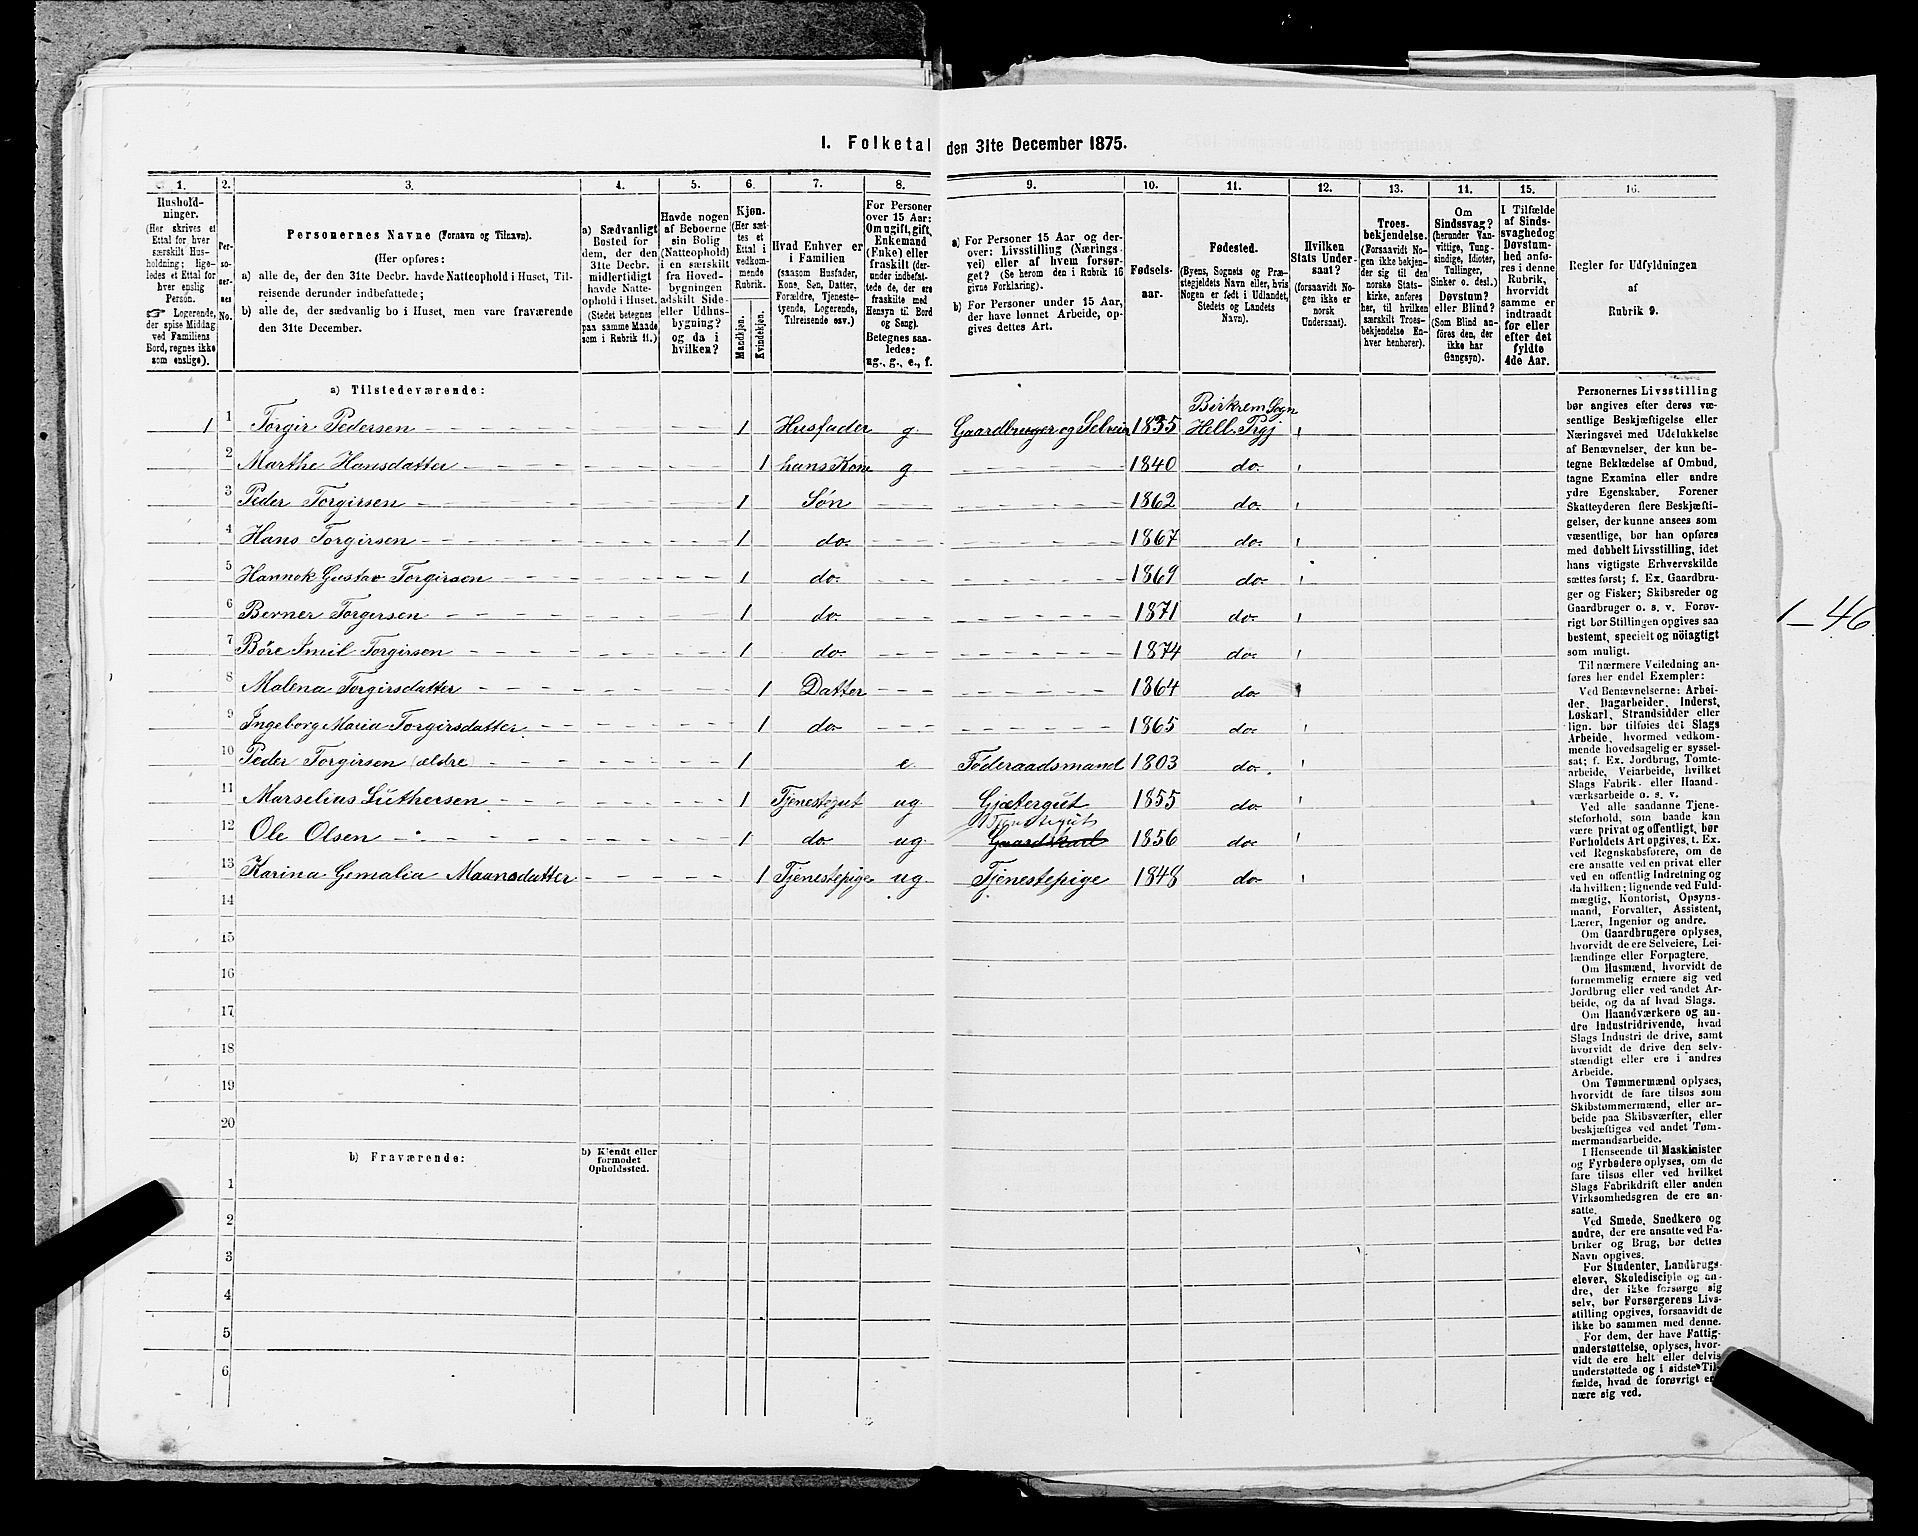 I. Folketal den 31te December 1875.
1. 2. 3. 4. 5. 6. 7. 8. 9. 10. 11. 12. 13. 14. 15. 16.
Hushold-
ninger.
(Her skrives et
Ettal for hver
særskilt Hus-
holdning; lige-
ledes et Ettal for
hver enslig
Person.
☞ Logerende,
der spise Middag
ved Familiens
Bord, regnes ikke
som enslige).
Per-
so-
ner-
nes
No.
Personernes Navne (Fornavn og Tilnavn).
(Her opføres:
a) alle de, der den 31te Decbr. havde Natteophold i Huset, Til-
reisende derunder indbefattede;
b) alle de, der sædvanlig bo i Huset, men vare fraværende
den 31te December.
a) Sædvanligt
Bosted for
dem, der den
31te Decbr.
midlertidigt
havde Natte-
ophold i Huset.
(Stedet betegnes
paa samme Maade
som i Rubrik 11.)
Havde nogen
af Beboerne
sin Bolig
(Natteophold)
i en særskilt
fra Hoved-
bygningen
adskilt Side-
eller Udhus-
bygning?
og da i
hvilken?
Kjøn.
(Her sæt-
tes et
Ettal i
vedkom-
mende
Rubrik.
Mandkjøn.
Kvindekjøn.
Hvad Enhver er
i Familien
(saasom Husfader,
Kone, Søn, Datter,
Forældre, Tjeneste-
tyende, Logerende,
Tilreisende osv.)
For Personer
over 15 Aar:
Om ugift, gift,
Enkemand
(Enke) eller
fraskilt (der-
under indbefat-
tede de, der ere
fraskilte med
Hensyn til Bord
og Seng).
Betegnes saa-
ledes:
ug., g., e., f.
a) For Personer 15 Aar og der-
over: Livsstilling (Nærings-
vei) eller af hvem forsør-
get? (Se herom den i Rubrik 16
givne Forklaring).
b) For Personer under 15 Aar,
der have lønnet Arbeide, op-
gives dettes Art.
Fødsels-
aar.
Fødested.
(Byens, Sognets og Præ-
stegjeldets Navn eller, hvis
Nogen er født i Udlandet,
Stedets og Landets
Navn).
Hvilken
Stats Under-
saat?
(forsaavidt No-
gen ikke er
norsk
Undersaat).
Troes-
bekjendelse.
(Forsaavidt No-
gen ikke bekjen-
der sig til den
norske Stats-
kirke, anføres
her, til hvilken
særskilt Troes-
bekjendelse En-
hver henhører).
Om
Sindssvag?
(herunder Van-
vittige, Tung-
sindige, Idioter,
Tullinger,
Sinker o. desl.)
Døvstum?
eller Blind?
(Som Blind an-
føres den, der
ikke har
Gangsyn).
I Tilfælde
af Sinds-
svaghed og
Døvstum-
hed anfø-
res i denne
Rubrik,
hvorvidt
samme er
indtraadt
før eller
efter det
fyldte
4de Aar.
Regler for Udfyldningen
af
Rubrik 9.
a) Tilstedeværende:
Birkrem Sogn
1 1 Torgir Pedersen 1 Husfader g Gaardbruger og Selveier 1835 Hell. Prgj
2 Marthe Hansdatter 1 hans Kone g 1840 do
3 Peder Torgirsen 1 Søn 1862 do
4 Hans Torgirsen 1 do 1867 do
5 Hannok Gustav Torgirsen 1 do 1869 do
6 Berner Torgersen 1 do 1871 do
7 Børe Imil Torgirsen 1 do 1874 do
8 Malena Torgirsdatter 1 Datter 1864 do
9 Ingeborg Maria Torgirsdatter 1 do 1865 do
10 Peder Torgirsen (ældre) 1 e Føderaadsmand 1803 do
11 Marselius Luthersen 1 Tjenestegut ug Gjætergut 1855 do
Tjenestegut
12 Ole Olsen 1 do ug Gaardskarl 1856 do
13 Karina Gemalia Maansdatter 1 Tjenestepige ug Tjenestepige 1848 do
14
15
16
17
18
19
20
b) Fraværende:
b) Kjendt eller
formodet
Opholdssted.
1
2
3
4
5
6
Personernes Livsstilling
bør angives efter deres væ-
sentlige Beskjæftigelse eller
Næringsvei med Udelukkelse
af Benævnelser, der kun be-
tegne Beklædelse af Ombud,
tagne Examina eller andre
ydre Egenskaber. Forener
Skatteyderen flere Beskjæfti-
gelser, der kunne ansees som
væsentlige, bør han opføres
med dobbelt Livsstilling, idet
hans vigtigste Erhvervskilde
sættes først; f. Ex. Gaardbru-
ger og Fisker; Skibsreder og
Gaardbruger o. s. v. Forøv-
rigt bør Stillingen opgives saa
bestemt, specielt og nöiagtigt
som muligt.
Til nærmere Veiledning an-
føres her endel Exempler:
Ved Benævnelserne: Arbei-
der, Dagarbeider, Inderst,
Løskarl, Strandsidder eller
lign. bør tilføies det Slags
Arbeide, hvormed vedkom-
mende hovedsagelig er syssel-
sat; f. Ex. Jordbrug, Tømte-
arbeide, Veiarbeide, hvilket
Slags Fabrik- eller Haand-
værksarbeide o. s. v.
Ved alle saadanne Tjene-
steforhold, som baade kan
være privat og offentligt, bør
Forholdets Art opgives, t. Ex.
ved Regnskabsførere, om de
ere ansatte ved en privat eller
ved en offentlig Indretning og
da hvilken; lignende ved Fuld-
mægtig, Kontorist, Opsyns-
mand, Forvalter, Assistent,
Lærer, Ingeniør og andre.
Om Gaardbrugere oplyses,
hvorvidt de ere Selveiere, Lei-
lændinge eller Forpagtere.
Om Husmænd, hvorvidt de
fornemmelig ernære sig ved
Jordbrug eller ved andet Ar-
beide, og da af hvad Slags.
Om Haandværkere og an-
dre Industridrivende, hvad
Slags Industri de drive, samt
hvorvidt de drive den selv-
stændigt eller ere i andres
Arbeide.
Om Tømmermænd oplyses,
hvorvidt de fare tilsøs som
Skibstømmermænd, eller ar-
beide paa Skibsværfter, eller
beskjæftiges ved andet Tøm-
mermandsarbeide.
I Henseende til Maskinister
og Fyrbødere oplyses, om de
fare tilsøs eller ved hvilket
Slags Fabrikdrift eller anden
Virksomhedsgren de ere an-
satte.
Ved Smede, Snedkere og
andre, der ere ansatte ved Fa-
briker og Brug, bør dettes
Navn opgives.
For Studenter, Landbrugs-
elever, Skoledisciple og an-
dre, der ikke forsørge sig
selv, bør Forsørgerens Livs-
stilling opgives, forsaavidt de
ikke bo sammen med denne.
For dem, der have Fattig-
understøttelse, oplyses, hvor-
vidt de ere helt eller delvis
understøttede og i sidste Til-
fælde, hvad de forøvrigt er-
nære sig ved.
1 – 46.